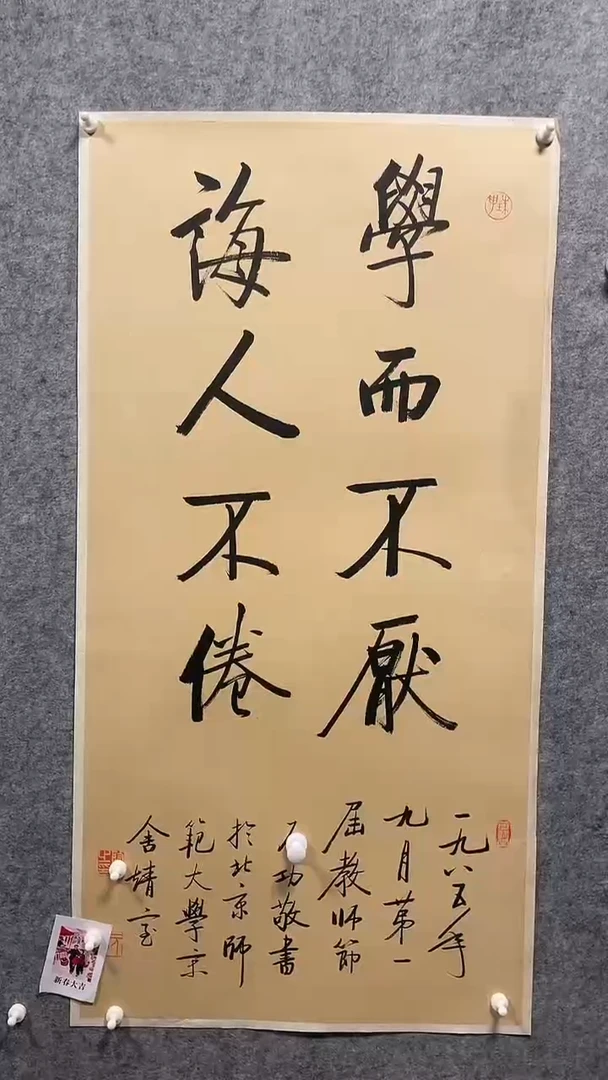 學而不厭
誨人不倦
一九八五年
九月第一
屆教師節
功敬書
於北京師
範大學
舍
新春大吉